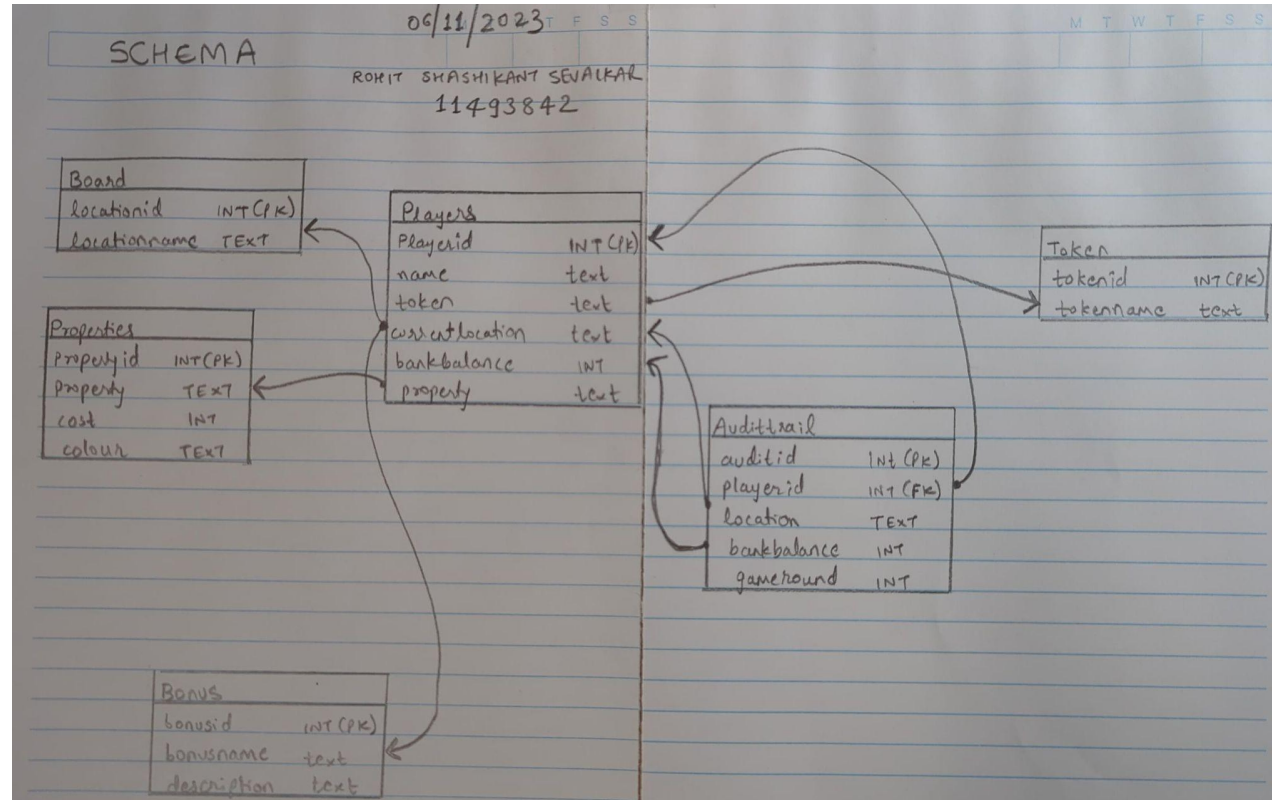 06/11/2023
T F S S
M T W T F S S
SCHEMA
ROHIT SHASHIKANT SEVALKAR
11493842
Board
locationid INT(PK)
locationname TEXT
Players
Playerid INT(PK)
name text
token text
currentlocation text
bankbalance INT
property text
Token
tokenid INT(PK)
tokenname text
Properties
Propertyid INT(PK)
Property TEXT
cost INT
colour TEXT
Audittrail
auditid INt (PK)
playerid INT (FK)
location TEXT
bankbalance INT
gameround INT
Bonus
bonusid INT (PK)
bonusname text
description text